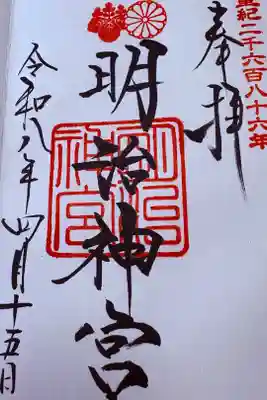 皇紀二千六百八十六年
奉拝
明治神宮
明治神宮
令和八年四月十五日